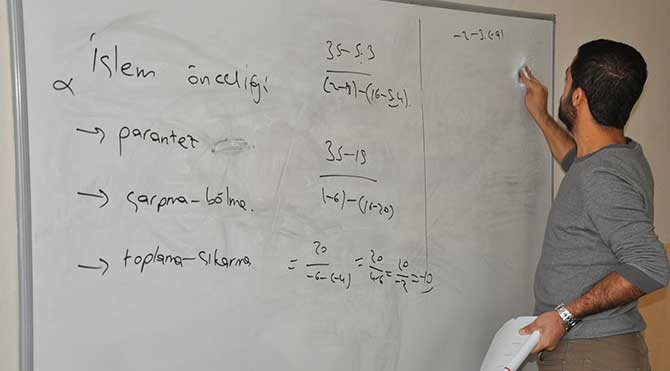 α İşlem önceliği
→ parantez
→ çarpma-bölme.
→ toplama-çıkarma
35-5.3
(2-8)-(16-5.4)
35-15
(-6)-(16-20)
= 20 = 20 = 20 = -10
-6-(-4) 4-6 -2
-2-3.(-4)